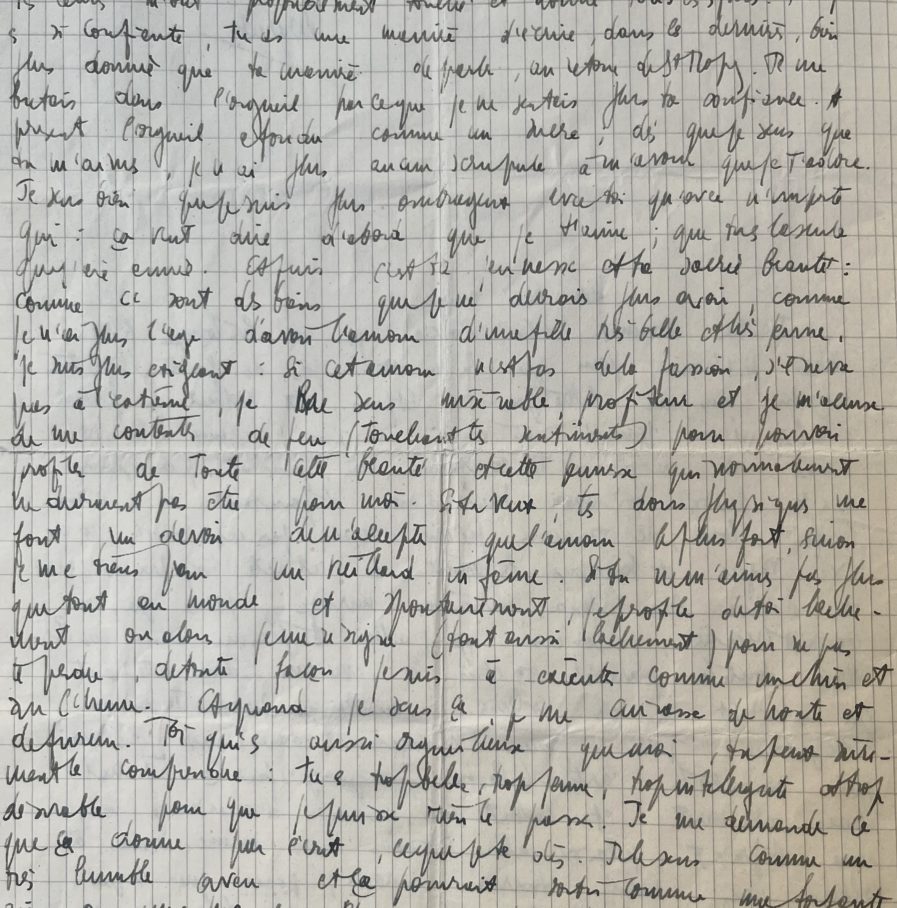 si confiante, tu as une manière d'écrire, dans les dernières, bien
plus donnée que ta manière de parler, au retour de St Tropez. Je me
butais dans l'orgueil parce que je ne sentais plus ta confiance. A
présent l'orgueil a fondu comme un sucre, dès que je sens que
tu m'aimes, je n'ai plus aucun scrupule à m'avouer que je t'adore.
Je sais bien que je suis plus ombrageux avec toi qu'avec n'importe
qui : ça veut dire d'abord que je t'aime ; que tu es la seule
que j'aie aimée. Et puis c'est ta jeunesse et ta sacrée beauté :
comme ce sont des biens que je ne devrais plus avoir, comme
je n'ai plus l'âge d'avoir l'amour d'une fille très belle et très jeune,
je suis plus exigeant : si cet amour n'est pas de la passion, s'il ne va
pas à l'extrême, je me sens misérable, profiteur et je m'accuse
de me contenter de peu (touchant tes sentiments) pour pouvoir
profiter de toute cette beauté et cette jeunesse qui normalement
ne devraient pas être pour moi. Si tu veux, tes dons physiques me
font un devoir de n'accepter que l'amour le plus fort, sinon
je me tiens pour un vieillard infâme. Si tu ne m'aimes pas plus
que tout au monde et spontanément, je profite de toi lâche-
ment ou alors je me résigne (tout aussi lâchement) pour ne pas
te perdre, de toute façon je suis à exécuter comme un chien et
Et quand je sens ça, je me cuirasse de honte et
de fureur. Toi qui es aussi orgueilleuse que moi, tu peux
le comprendre : tu es trop belle, trop jeune, trop intelligente et trop
désirable pour que je puisse rien te passer. Je me demande ce
que ça donne par écrit, ce que je te dis. Je le sens comme un
très humble aveu et ça pourrait sortir comme une